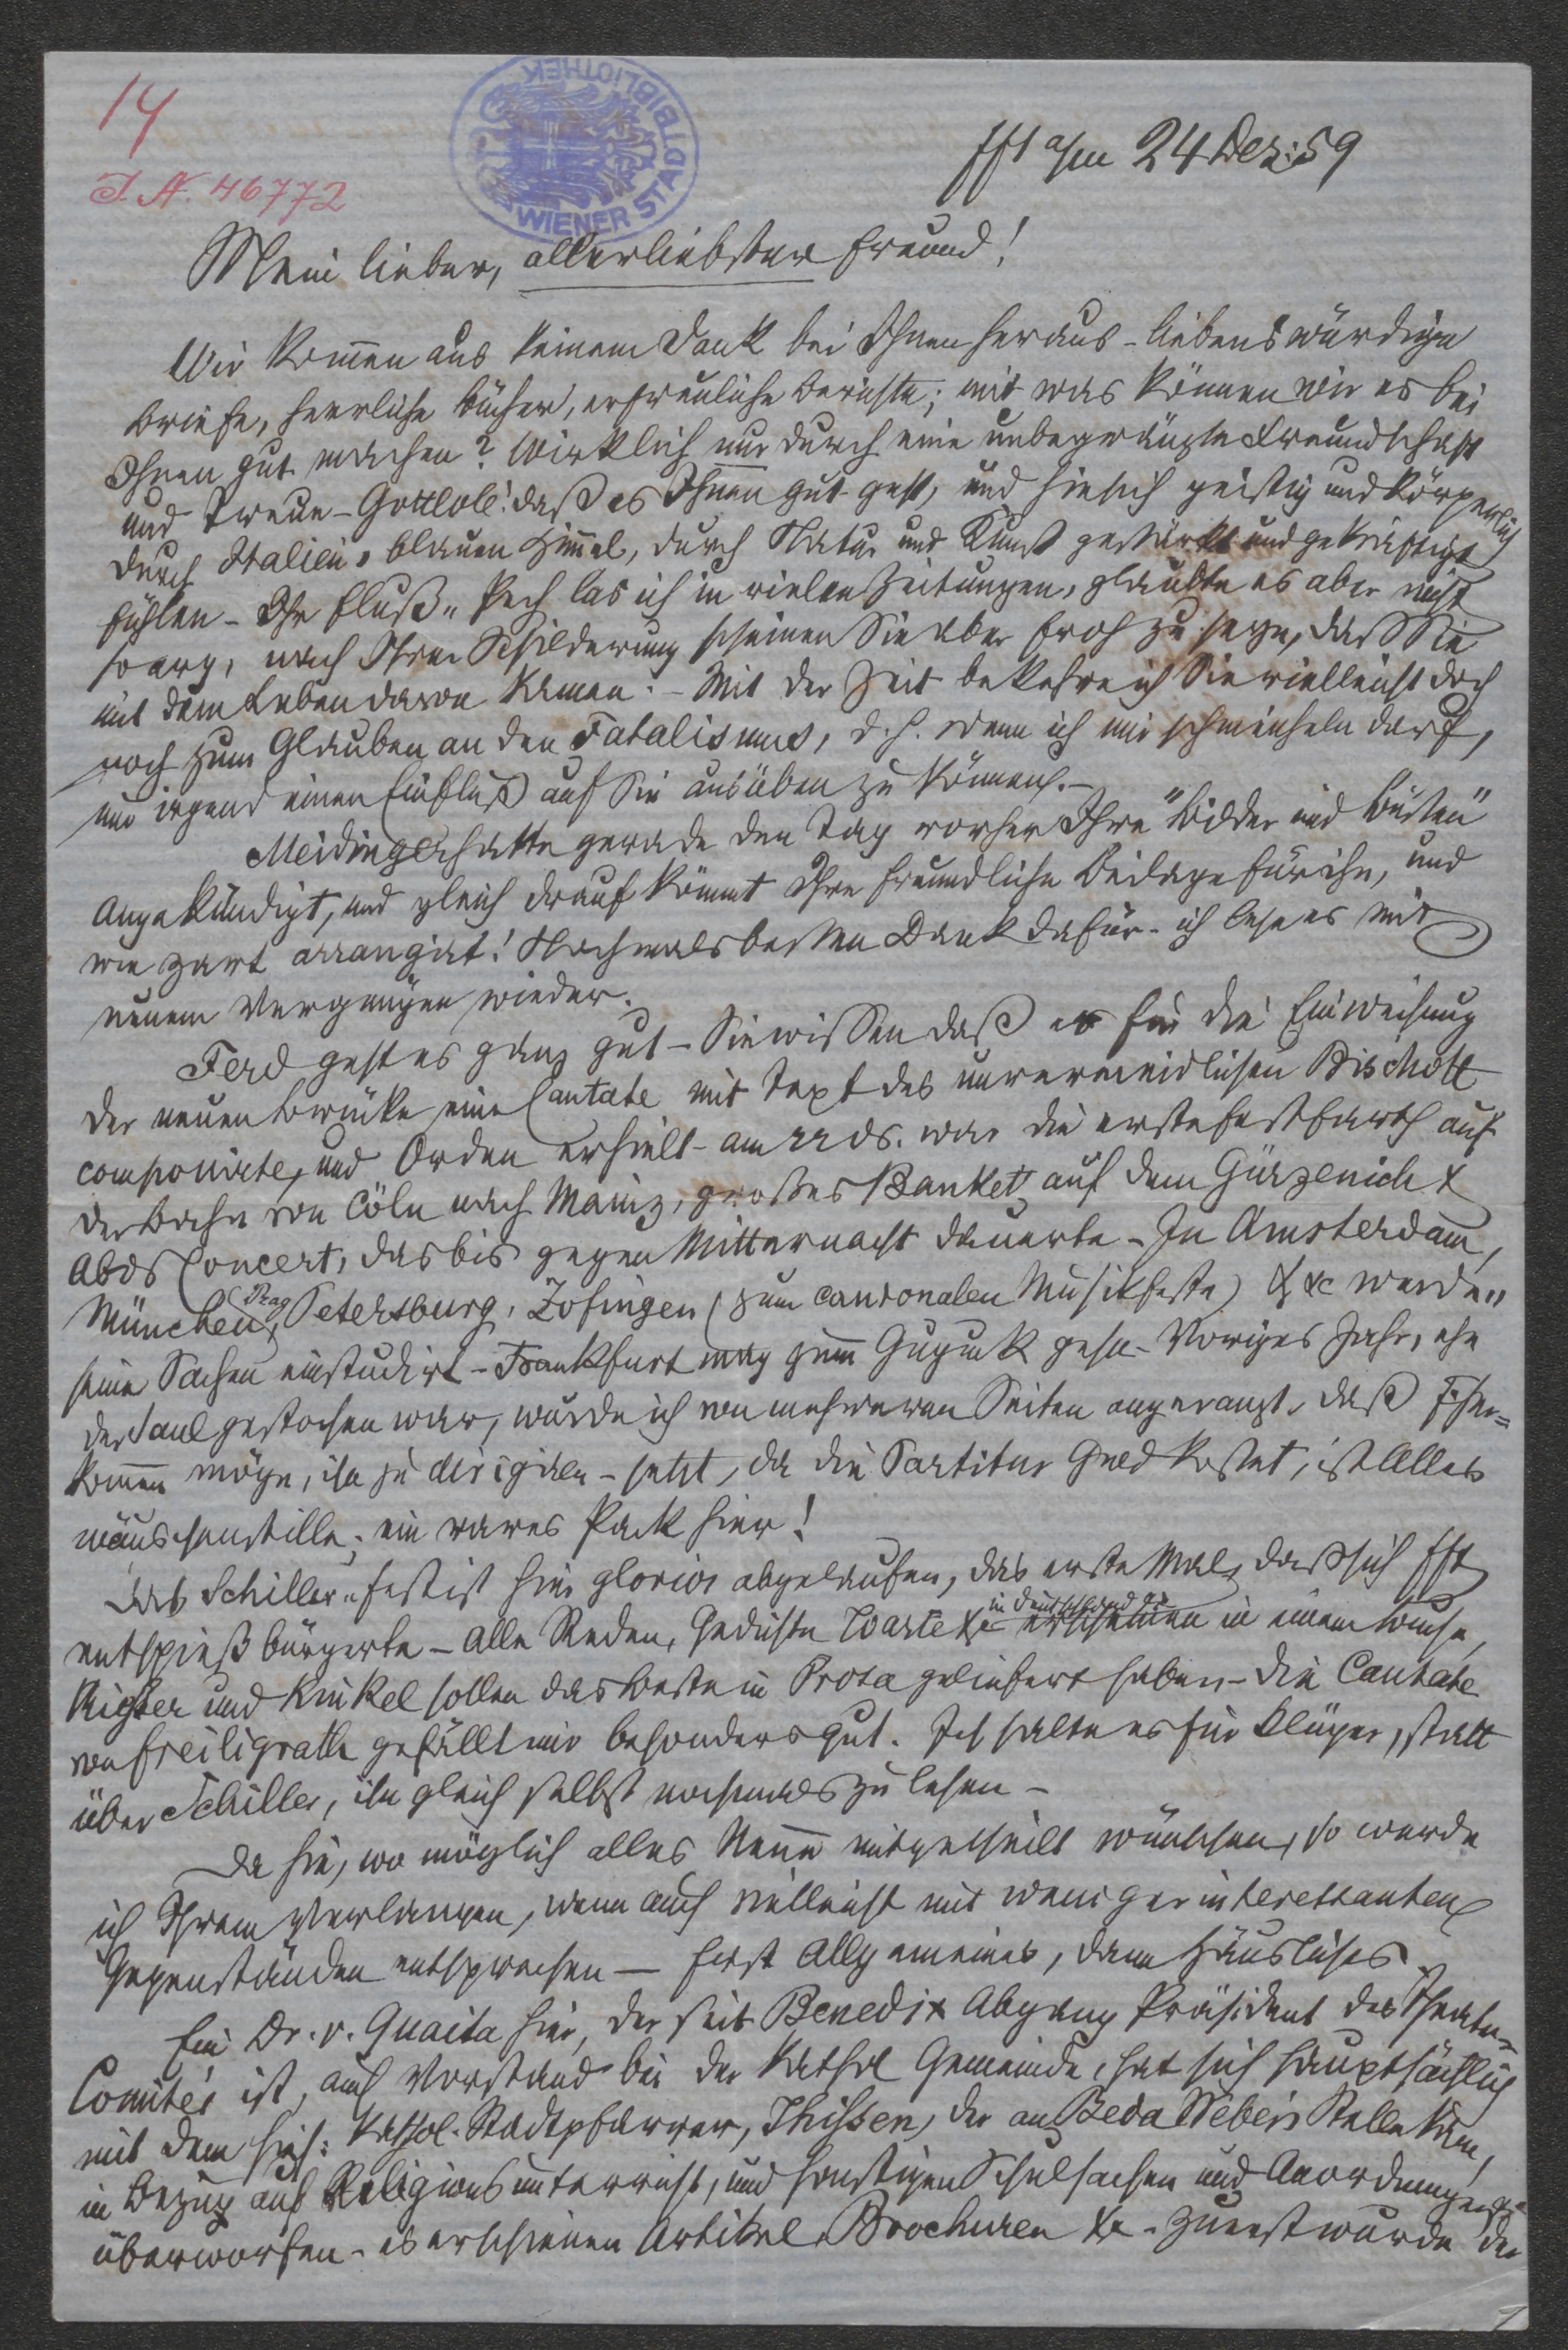 14
I. N. 46772
WIENER STADTBIBLIOTHEK
Fft a/m 24 Dez: 59
Mein lieber, allerliebster Freund!
Wir kommen aus keinem Dank bei Ihnen heraus - liebenswürdige
Briefe, herrliche Bücher, erfreuliche Berichte; mit was können wir es bei
Ihnen gut machen? Wirklich nur durch eine unbegränzte Freundschaft
und Treue - Gottlob! daß es Ihnen gut geht, und Sie sich geistig und körperlich
durch Italien's blauen Himmel, durch Natur und Kunst gestärkt und gekräftigt
fühlen - Ihr Fluß-Pech las ich in vielen Zeitungen, glaubte es aber nicht
so arg, nach Ihrer Schilderung scheinen Sie aber froh zu seyn, daß Sie
mit dem Leben davon kamen. - Mit der Zeit bekehre ich Sie vielleicht doch
noch zum Glauben an den Fatalismus, d. h. wenn ich mir schmeicheln darf,
nur irgend einen Einfluß auf Sie ausüben zu können. -
Meidinger hatte gerade den Tag vorher Ihre "Bilder und Büsten"
angekündigt, und gleich drauf kömmt Ihre freundliche Beilage für ihn, und
wie zart arrangirt! Nochmals besten Dank dafür - ich lese es mit
neuem Vergnügen wieder.
Ferd geht es ganz gut - Sie wissen daß er für die Einweihung
der neuen Brücke eine Cantate mit Text des unvermeidlichen Bischoff
componirte, und Orden erhielt - am 22 ds. war die erste Festfarth auf
der Bahn von Cöln nach Mainz, großes Bankett auf dem Gürzenich &
Abds Concert, das bis gegen Mitternacht dauerte - In Amsterdam,
München, Prag Petersburg, Zofingen (zum cantonalen Musikfeste) & &c werden
seine Sachen einstudirt - Frankfurt mag zum Guguck gehn - Voriges Jahr, ehe
der Saul gestochen war, wurde ich von mehreren Seiten angeranzt, daß F. her=
kommen möge, ihn zu dirigiren - jetzt, da die Partitur Geld kostet, ist Alles
mäuschenstille; ein rares Pack hier!
Das Schiller-Fest ist hier glorios abgelaufen, das erste Mal, daß sich Fft
entspießbürgerte - Alle Reden, Gedichte Toaste &c in Deutschland erscheinen in einem Buche,
Vischer und Kinkel sollen das Beste in Prosa geliefert haben - Die Cantate
von Freiligrath gefällt mir besonders gut. Ich halte es für klüger, statt
über Schiller, ihn gleich selbst nochmals zu lesen -
Da Sie, wo möglich alles Neue mitgetheilt wünschen, so werde
ich Ihrem Verlangen, wenn auch vielleicht mit weniger interessanten
Gegenständen entsprechen — Erst Allgemeines, dann Häusliches.
Ein Dr. v. Guaita hier, der seit Benedix Abgang Präsident des Theater=
Comités ist, auch Vorstand bei der Kathol Gemeinde, hat sich hauptsächlich
mit dem hies: Kathol. Stadtpfarrer, Thissen, der an Beda Weber's Stelle kam,
in Bezug auf Religionsunterricht, und sonstigen Schulsachen und Anordnungen
überworfen - es erschienen Artikel, Brochuren &c - Zuerst wurde der
1